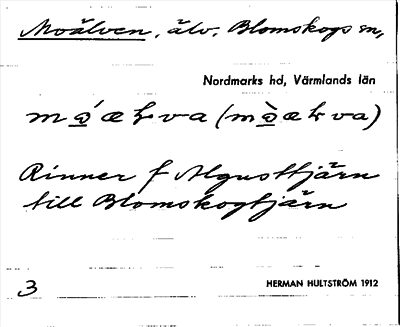 Moälven, älv, Blomskogs sn,
Nordmarks hd, Värmlands län
Rinner f Algustjärn
till Blomskogtjärn
3
HERMAN HULTSTRÖM 1912